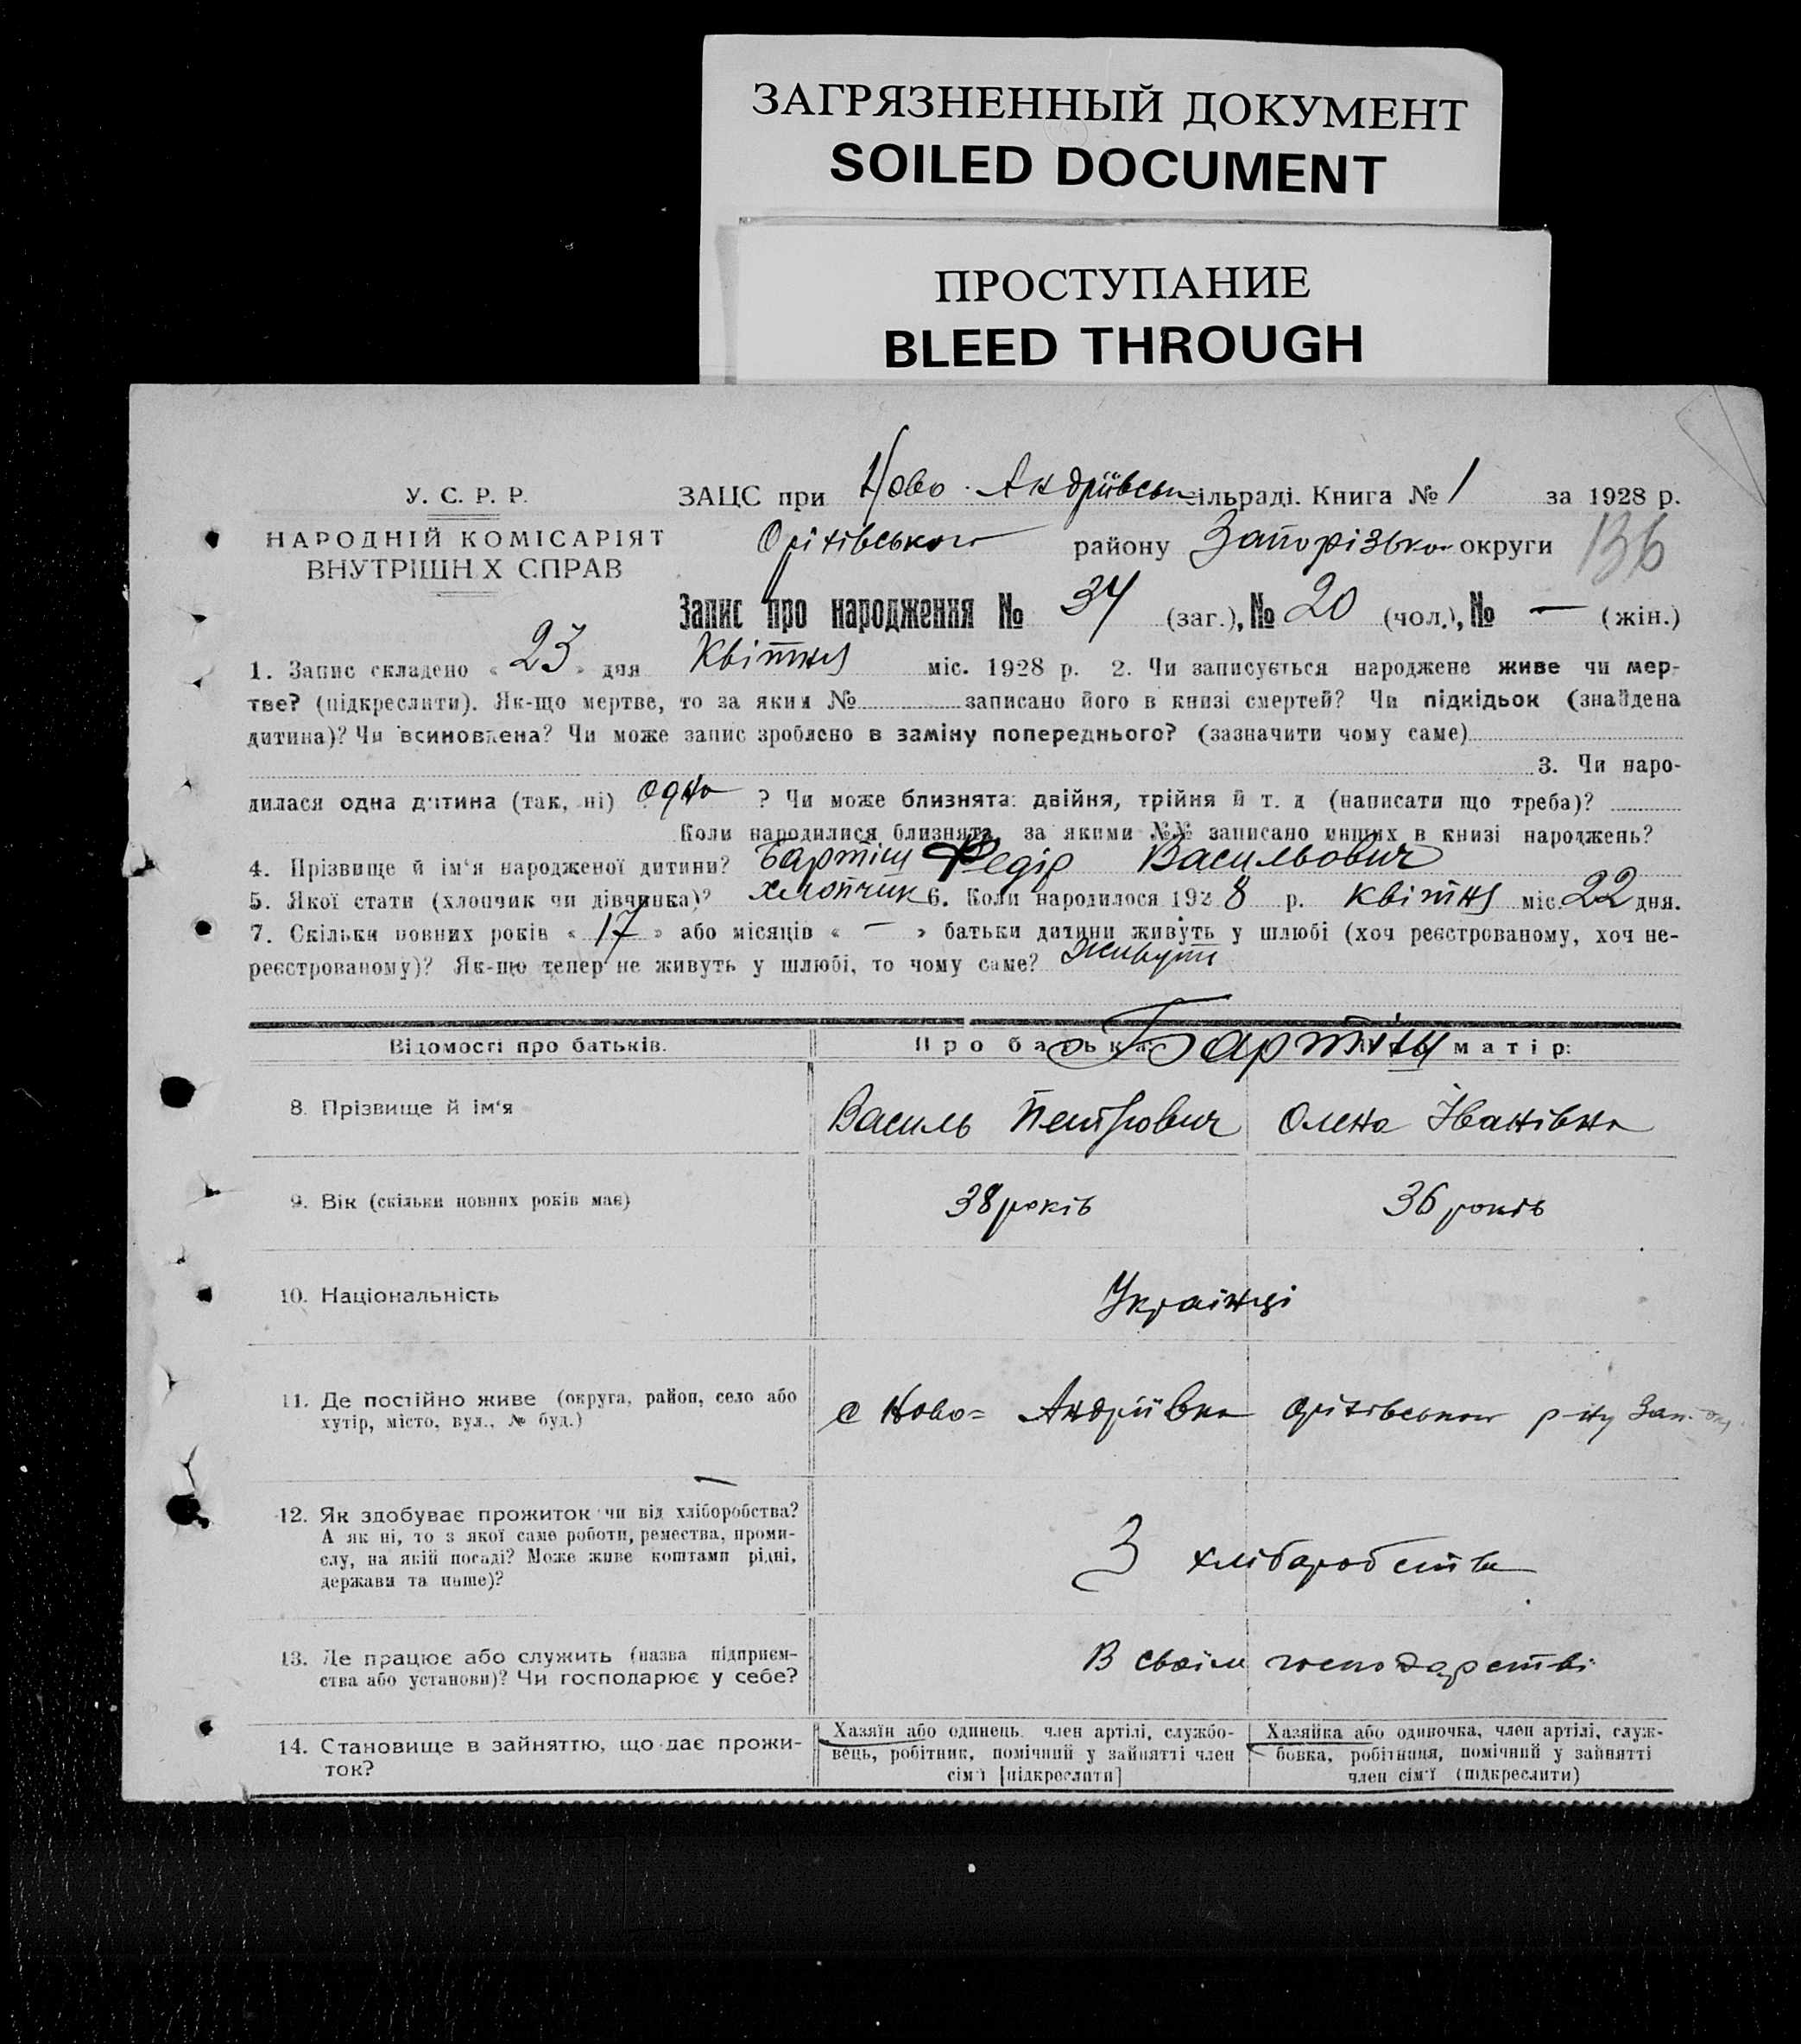 ЗАГРЯЗНЕННЫЙ ДОКУМЕНТ
SOILED DOCUMENT
ПРОСТУПАНИЕ
BLEED THROUGH
У. С. Р. Р.
НАРОДНІЙ КОМІСАРІЯТ
ВНУТРІШН Х СПРАВ
ЗАЦС при Ново-Андріївськ сільраді. Книга № 1 за 1928 р.
Оріхівського району Запорізько округи 136
Запис про народження № 34 (заг.), № 20 (чол.), № — (жін.)
1. Запис складено « 23 » дня Квітня міс. 1928 р. 2. Чи записується народжене живе чи мер-
тве? (підкреслити). Як-що мертве, то за яким № записано його в книзі смертей? Чи підкідьок (знайдена
дитина)? Чи всиновлена? Чи може запис зроблено в заміну попереднього? (зазначити чому саме)
3. Чи наро-
дилася одна дитина (так, ні) одна ? Чи може близнята: двійня, трійня й т. д (написати що треба)?
Коли народилися близнята, за якими №№ записано инших в книзі народжень?
4. Прізвище й ім'я народженої дитини? Бартіш Федір Васильович
5. Якої стати (хлопчик чи дівчинка)? хлопчик 6. Коли народилося 1928 р. квітня міс. 22 дня.
7. Скільки повних років « 17 » або місяців « — » батьки дитини живуть у шлюбі (хоч реєстрованому, хоч не-
реєстрованому)? Як-що тепер не живуть у шлюбі, то чому саме? Живуть
Відомості про батьків. Про батька: матір:
8. Прізвище й ім'я Василь Петрович Олена Іванівна
9. Вік (скільки повних років має) 38 років 36 років
10. Національність Українці
11. Де постійно живе (округа, район, село або
хутір, місто, вул., № буд.)
с Ново= Андріївка Оріхівського р-ну Зап. окр.
12. Як здобуває прожиток чи від хліборобства?
А як ні, то з якої саме роботи, ремества, проми-
слу, на якій посаді? Може живе коштами рідні,
держави та инше)?
З хліборобства
13. Де працює або служить (назва підприєм-
ства або установи)? Чи господарює у себе?
В своїм господарстві
14. Становище в зайняттю, що дає прожи-
ток?
Хазяїн або одинець, член артілі, службо-
вець, робітник, помічний у зайнятті член
сім'ї [підкреслити]
Хазяйка або одиночка, член артілі, служ-
бовка, робітниця, помічний у зайнятті
член сім'ї (підкреслити)